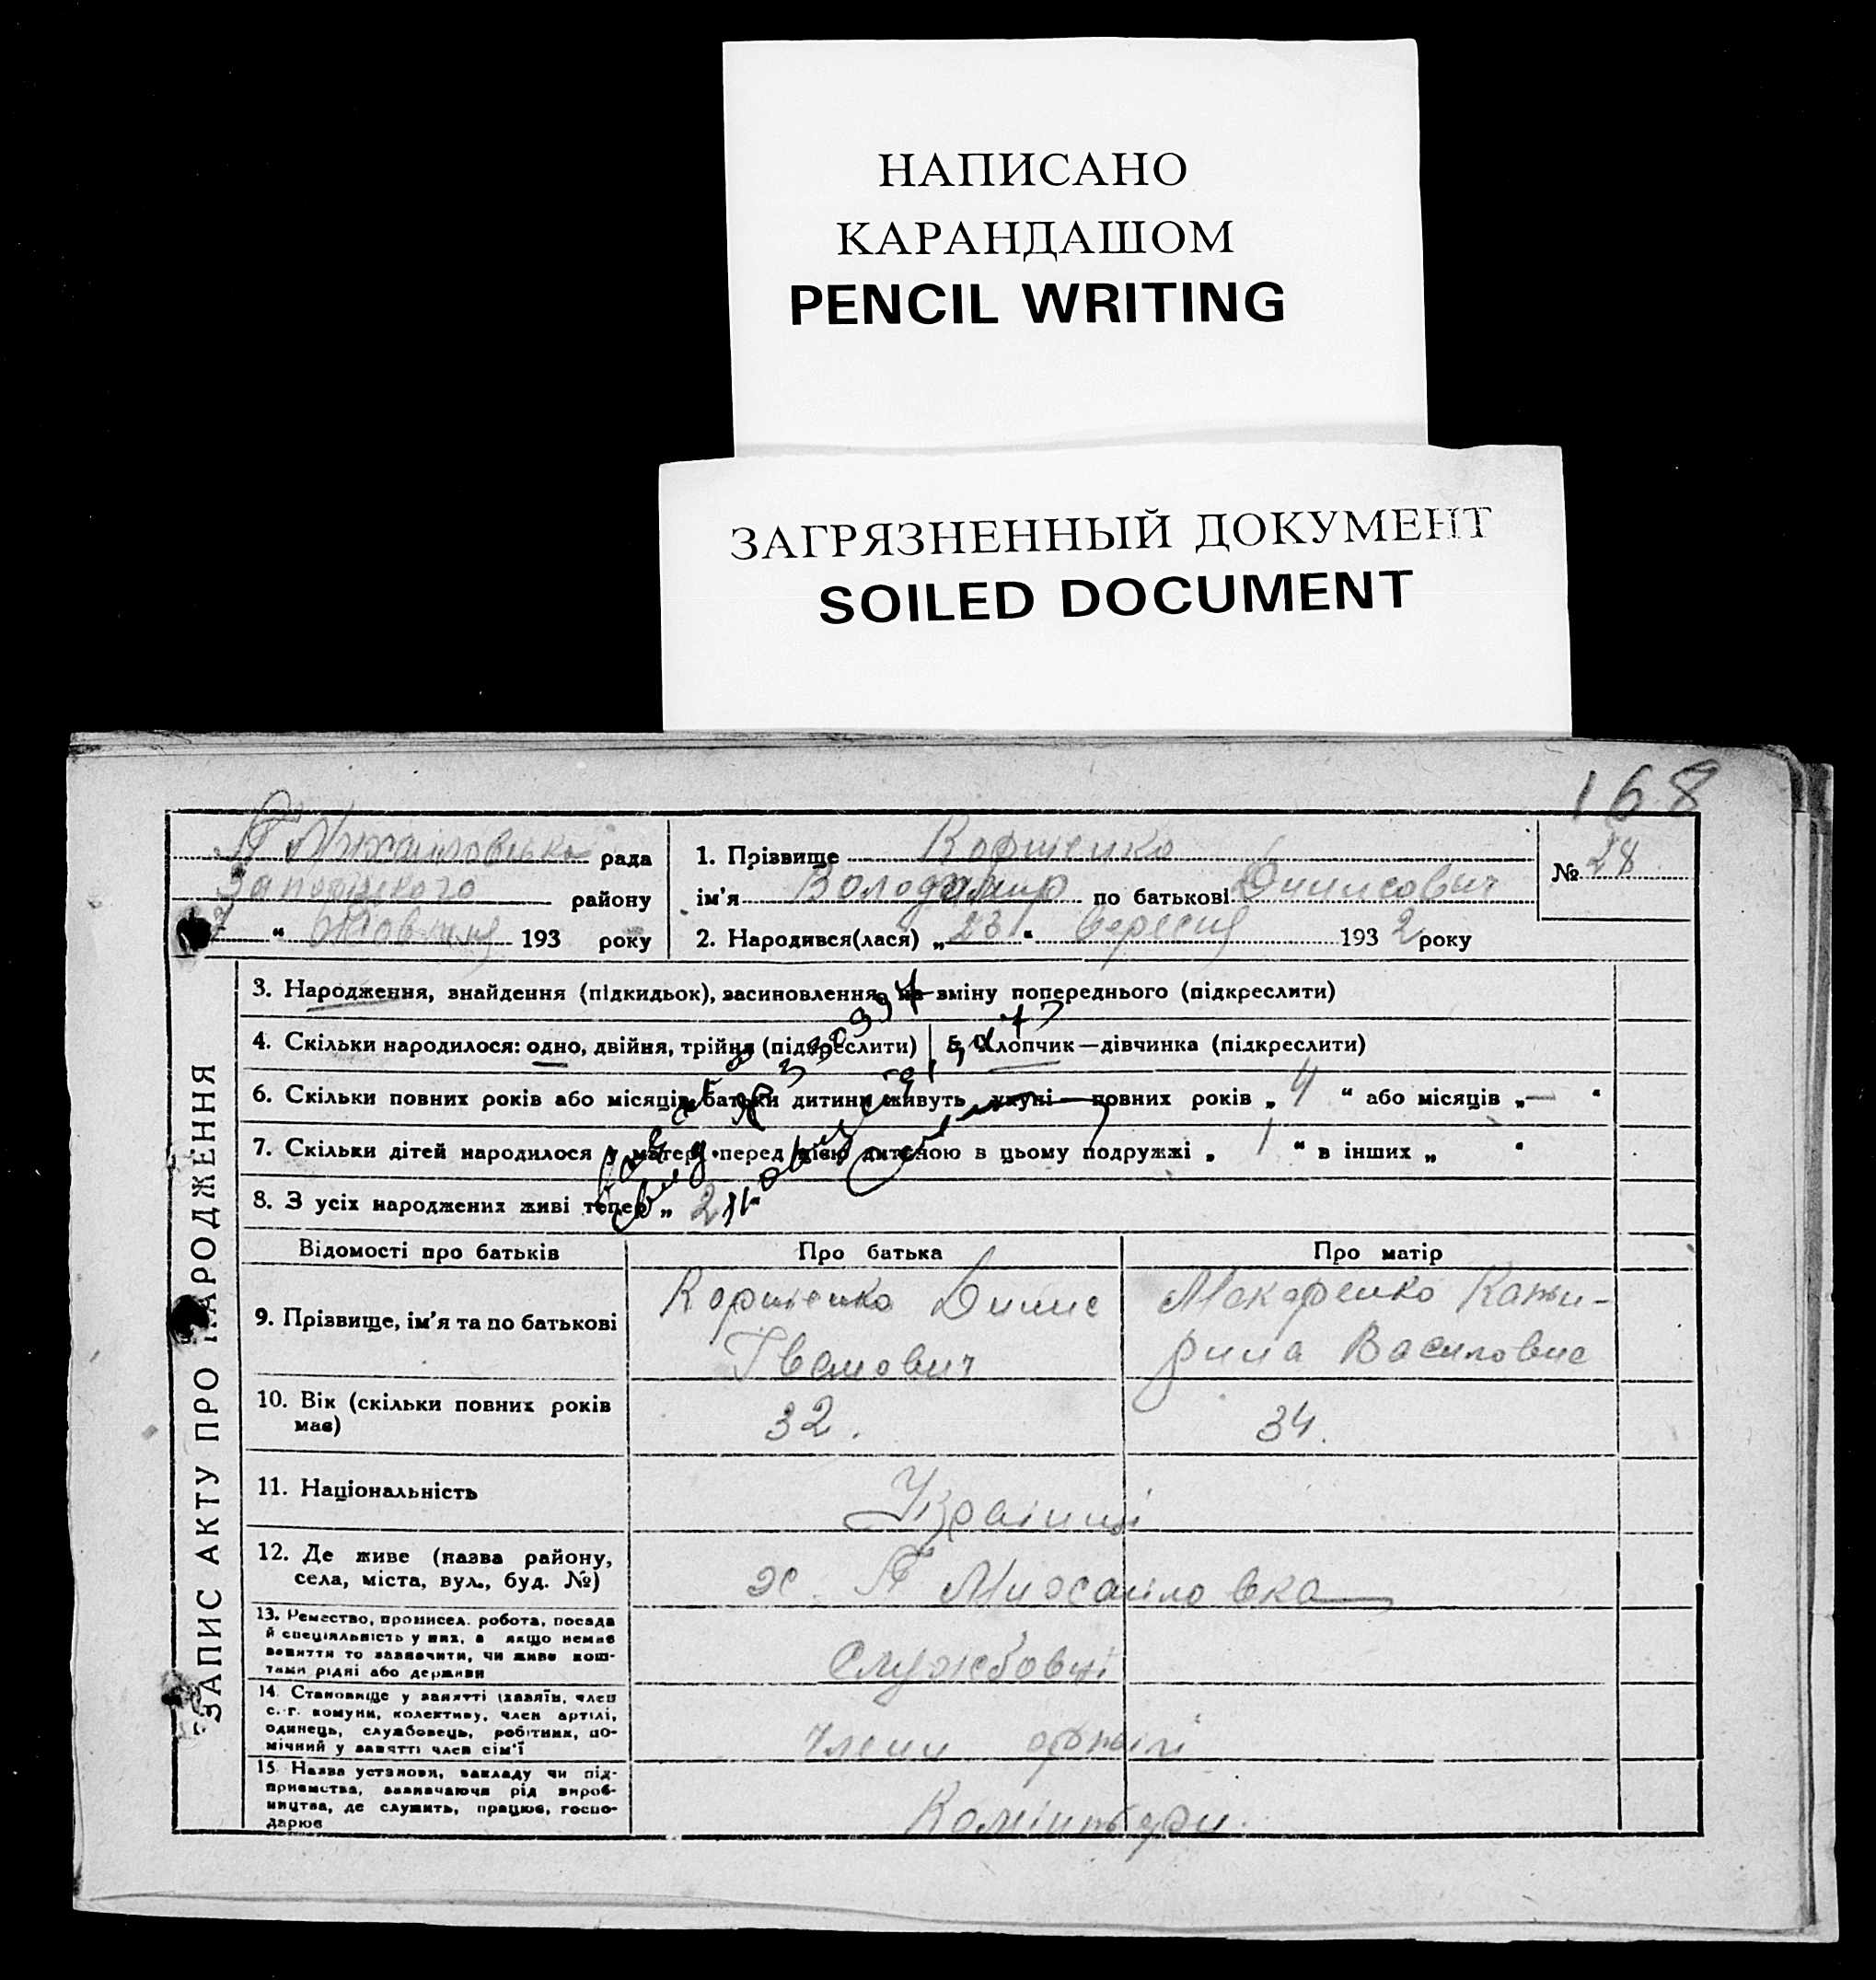 НАПИСАНО
КАРАНДАШОМ
PENCIL WRITING
ЗАГРЯЗНЕННЫЙ ДОКУМЕНТ
SOILED DOCUMENT
168
рада
району
" Жовтня 193 року
1. Прізвище Коршенко
ім'я Володимир по батькові Динисович
2. Народився(лася) „ 23 " вересня 193 2 року
№ 28
ЗАПИС АКТУ ПРО НАРОДЖЕННЯ
3. Народження, знайдення (підкидьок), засиновлення, на зміну попереднього (підкреслити)
4. Скільки народилося: одно, двійня, трійня (підкреслити)
5. Хлопчик—дівчинка (підкреслити)
6. Скільки повних років або місяців батьки дитини живуть укупі — повних років „ 4 " або місяців „ — "
7. Скільки дітей народилося у матері перед цією дитиною в цьому подружжі „ 1 " в інших „ "
8. З усіх народжених живі тепер „ 2
Відомості про батьків
Про батька
Про матір
9. Прізвище, ім'я та по батькові
Коршенко Динис
Іванович
Макаренко Кати-
рина Василовне
10. Вік (скільки повних років
має)
32.
34.
11. Національність
Українці
12. Де живе (назва району,
села, міста, вул., буд. №)
х. П Михайловка
13. Ремество, промисел, робота, посада
й спеціяльність у них, а якщо немає
заняття то зазначити, чи живе кош-
тами рідні або держави
Службовці
14. Становище у занятті (хазяїн, член
с.-г. комуни, колективу, член артілі,
одинець, службовець, робітник, по-
мічний у занятті член сім'ї
члени артілі
15. Назва установи, закладу чи під-
приємства, зазначаючи рід вироб-
ництва, де служить, працює, госпо-
дарює